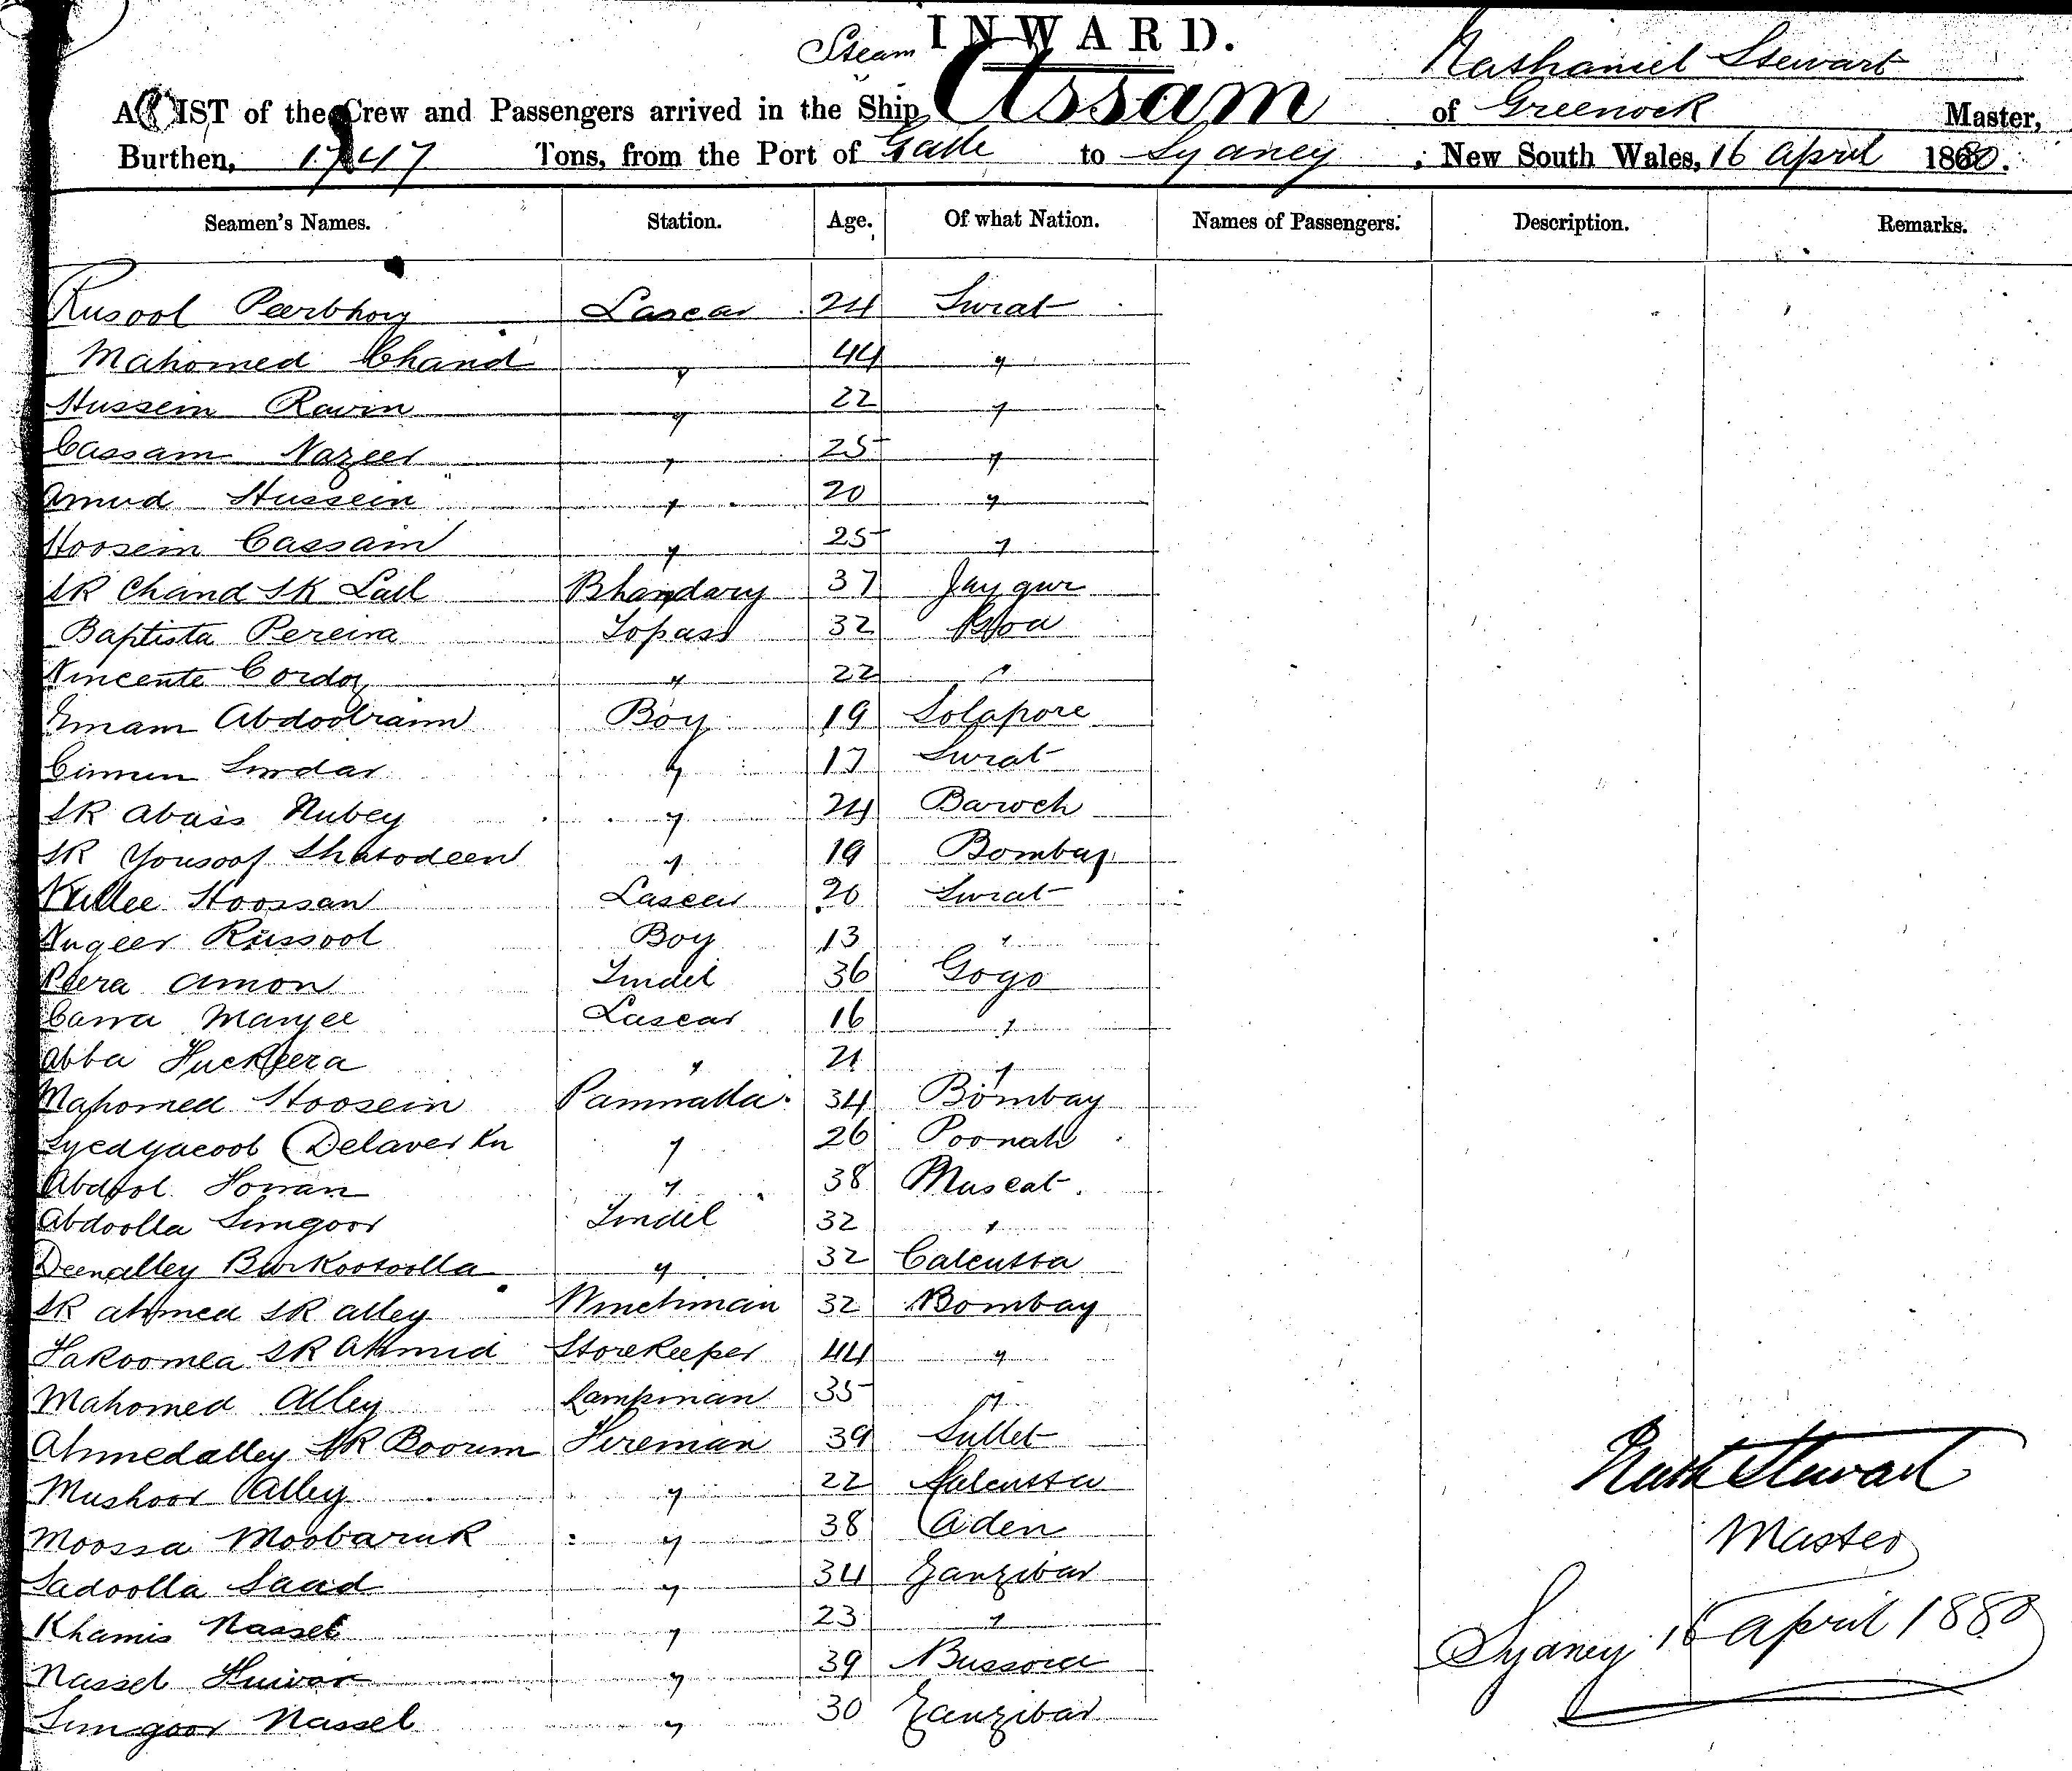 INWARD.
Steam
Nathaniel Stewart
A LIST of the Crew and Passengers arrived in the Ship Assam of Greenock Master,
Burthen, 1747 Tons, from the Port of Galle to Sydney, New South Wales, 16 April 1880.
Seamen's Names. Station. Age. Of what Nation. Names of Passengers. Description. Remarks.
Rusool Peerbhoy Lascar 24 Surat
Mahomed Chand " 44 "
Hussein Ravin " 22 "
Cassam Nazeer " 25 "
Amud Hussein " 20 "
Hoosein Cassam " 25 "
SK Chand SK Lall Bhandary 37 Jaygur
Baptista Pereira Topass 32 Goa
Vincente Cordoz " 22 "
Emam Abdoolraim Boy 19 Solapore
Cimmun Sirdar " 17 Surat
SK Abass Nubey " 24 Baroch
SK Yousoof Shabodeen " 19 Bombay
Kullee Hoossan Lascar 20 Surat
Nugeer Russool Boy 13 "
Peera Amon Tindel 36 Gogo
Cawa Manjee Lascar 16 "
Abba Fuckeera " 21 "
Mahomed Hoosein Paniwalla 34 Bombay
Syed Yacoob Delaver Kn " 26 Poonah
Abdool " 38 Muscat
Abdoolla Sungoor Tindel 32 "
Deenalley Burkootoolla " 32 Calcutta
SK Ahmed SK Alley Winchman 32 Bombay
Fakoomea SK Ahmud Storekeeper 44 "
Mahomed Alley Lampman 35 "
Ahmedalley SK Boorun Fireman 39 Sullet
Mushoor Alley " 22 Calcutta
Moossa Moobaruk " 38 Aden
Sadoolla Saad " 34 Zanzibar
Khamis Nassel " 23 "
Nassel " 39 Bussora
Sungoor Nassel " 30 Zanzibar
Nath Stewart
Master
Sydney 16 April 1880